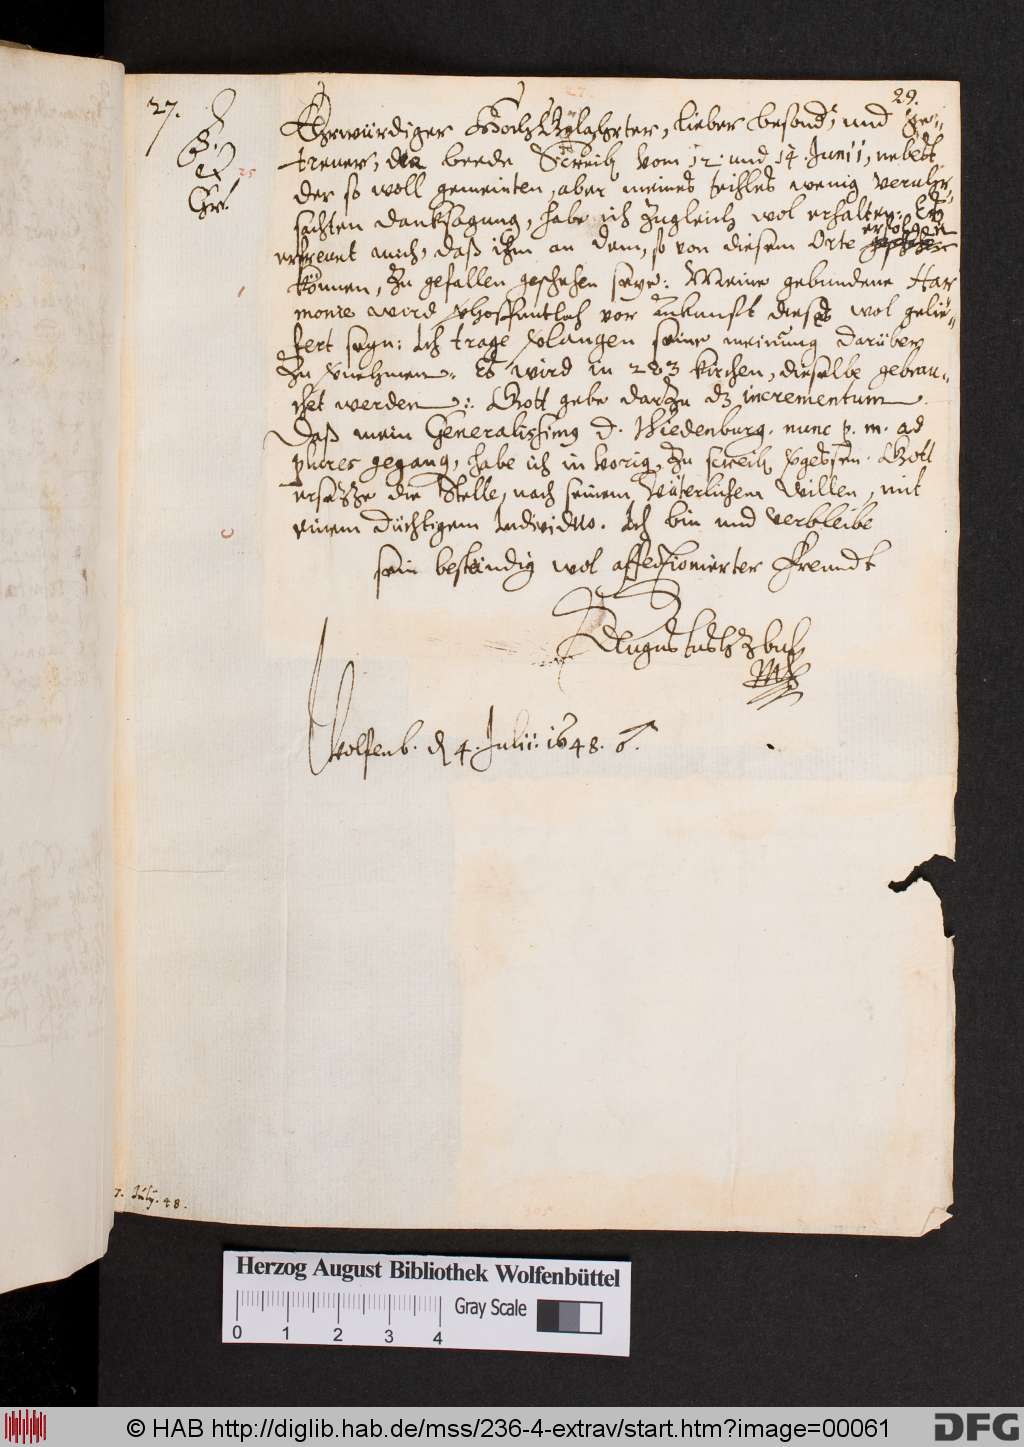 27.
29.
Ehrwürdiger HochGelahrter, lieber besond: und Ge=
trewer, beede Schreib vom 12. und 14. Junii, nebest
der so woll gemeinten, aber meines theils wenig veruhr=
sachten danksagung, habe ich zugleich wol erhalten: Es
erfreut mich, daß ihm an dem, so von diesem Orte erfolgen
können, zu gefallen geschehen seye: Meine gebundene Har
monie wird hoffentlich vor ankunft dieses wol gelie=
fert seyn: Ich trage verlangen seine meinung darüber
zu vernehmen: Es wird in kirchen, dieselbe gebrau=
chet werden: Gott gebe darzu dz incrementum.
Daß mein Generalissimus D. Wiedenburg. nunc p. m. ad
plures gegang, habe ich in vorig. zu schreib vergessen. Gott
ersetze die Stelle, nach seinem Väterlichem Willen, mit
einem düchtigem Individuo. Ich bin und verbleibe
sein bestendig wol affectionierter Freundt
Augustus HzbuL
Wolfenb. d 4. Julii: 1648.
7. July. 48.
Herzog August Bibliothek Wolfenbüttel
Gray Scale
0 1 2 3 4
© HAB http://diglib.hab.de/mss/236-4-extrav/start.htm?image=00061
DFG